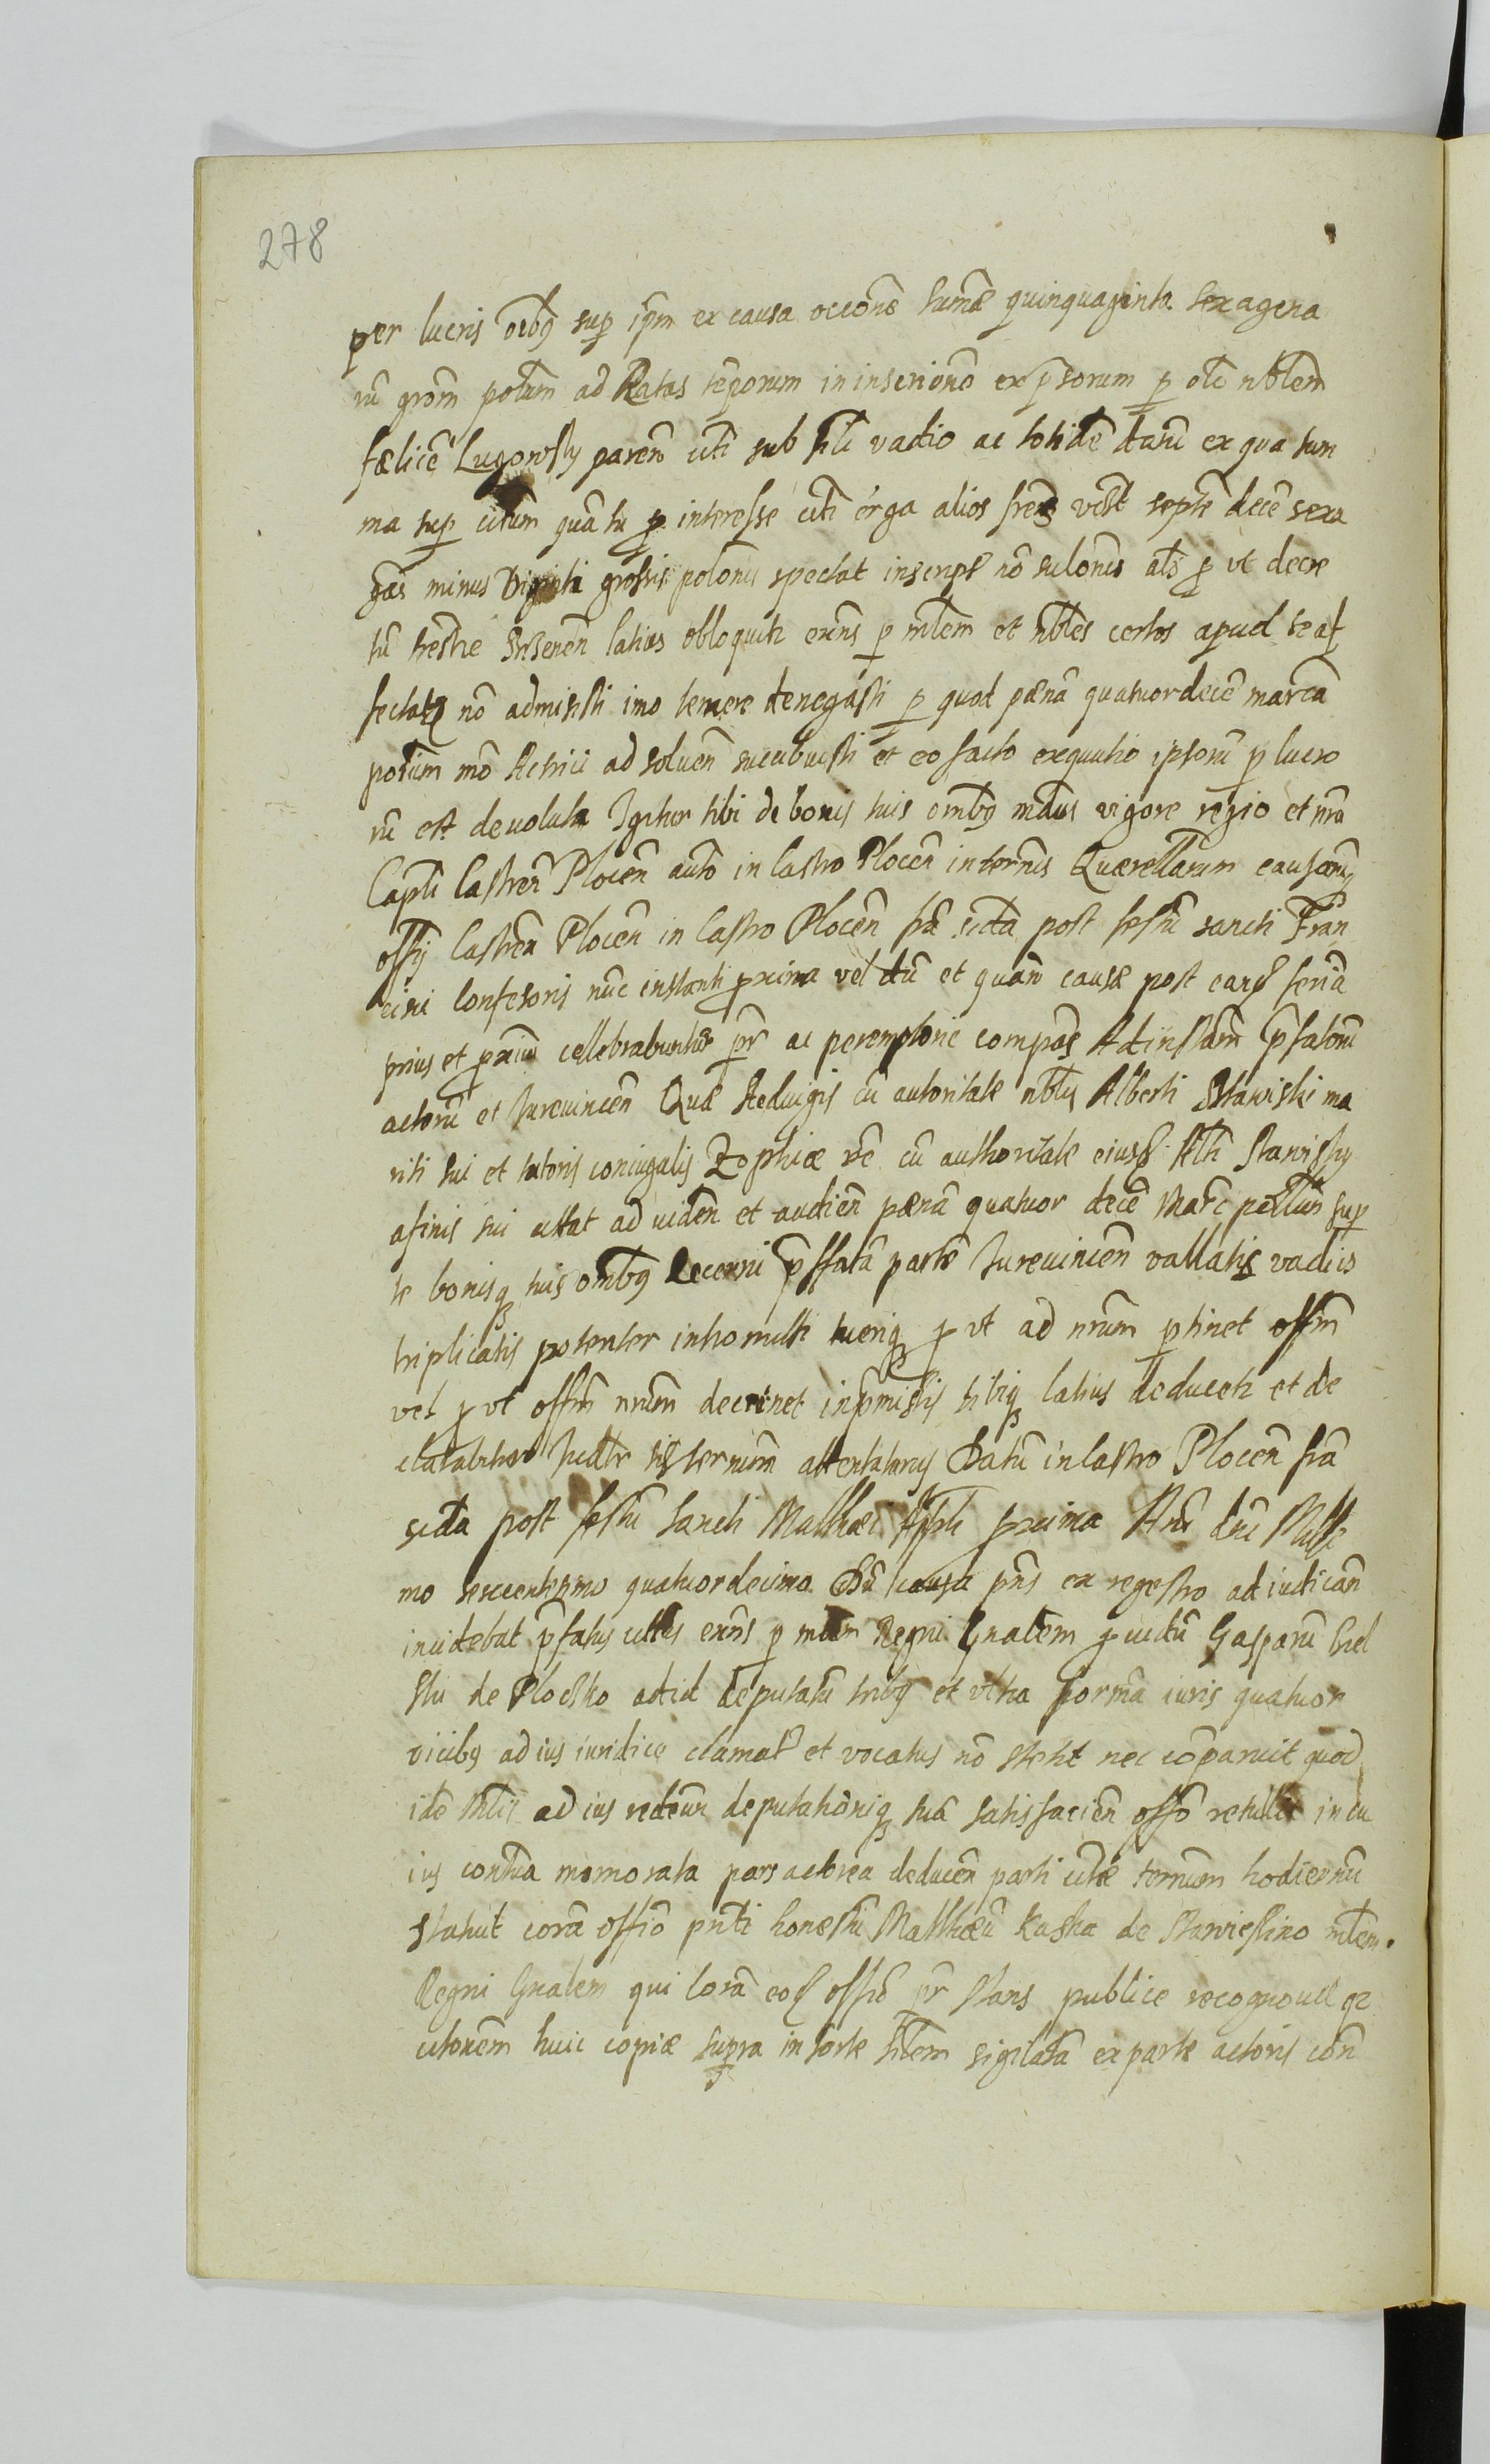 278
per lucris oībꝰ sup ipm ex causa occōne summæ quinquaginta sexagena
rū grom polm ad Ratas tēporum in inscriōne expssorum p olī nblem
fælicē Lugowsky parem citi sub sili vadio ac totidē darū ex qua sum
ma sup citum quātū p interesse citi erga alios frēs vide septē decē sexa
gās minus Viginti grossis polonis spectat inscript nō sulonis als p vt decre
tū trestre latius obloquitr exīns p mlem et nbles certos apud te af
fectatā nō admisisti imo temere denegasti p quod pœnā quatuordecē marcā
polm mō Actrici ad soluen succubuisti et eo facto exequutio ipsorū p lucro
rū est devoluta Igitur tibi de bonis tuis ombꝰ mdus vigore regio et nrā
Capti Castren Plocen autō in Castro Plocen in ternis Quærellarum causarūq
offīj Castren Plocen in Castro Plocen fra scda post festū sancti Fran
cisci Confesoris nūc instanti proxima vel dū et quan causæ post eand feriā
prius et pxius cellebrabuntur pr ac peremptorie compas Ad instam pfatorū
actorū et Iurevincen Quæ Hedvigis cū autoritate nblis Alberti Stawiski ma
riti sui et tutoris coniugalis Zophiæ vē cū authoritate eiusd Albti Stawisky
afinis sui cittat ad viden et audien pœnā quatuor decē Marc pollm sup
te bonisq tuis ombꝰ decerni pffatā partē Iurevincen vallatis vadiis
triplicatis potenter intromitti tueriq p vt ad nrum ptinet offm
vel p vt offm nrum decernet in pmissis tibiq latius deducetr et de
clarabitur Iudtr sis ternum attentaturus Datū in Castro Plocen fra
scda post festū Sancti Matthæi Apli proxima Anī dnī Mille
mo sexcentesimo quatuordecimo Dū causa pns ex regestro ad iudican
incidebat pfatus cittus exīns p mlem Regni Gnalem providū Gasparū
de Plocsko ad id deputatū tribꝰ et vltra formā iuris quatuor
vicibꝰ ad ius iuridice clamat et vocatus nō stetit nec cōparuit quod
idē mlis ad ius redeun deputationiq suæ satisfacien offō retulit in cu
ius contua memorata pars actorea deducen parti citæ ternum hodiernū
statuit corā offio pnti honestū Matthæū Kaska de Stawieskino mlem
Regni Gnalem qui Corā eod offio pr stans publice recognovit qz
citonem huic copiæ supra in sorte silem sigilatā ex parte actoris con